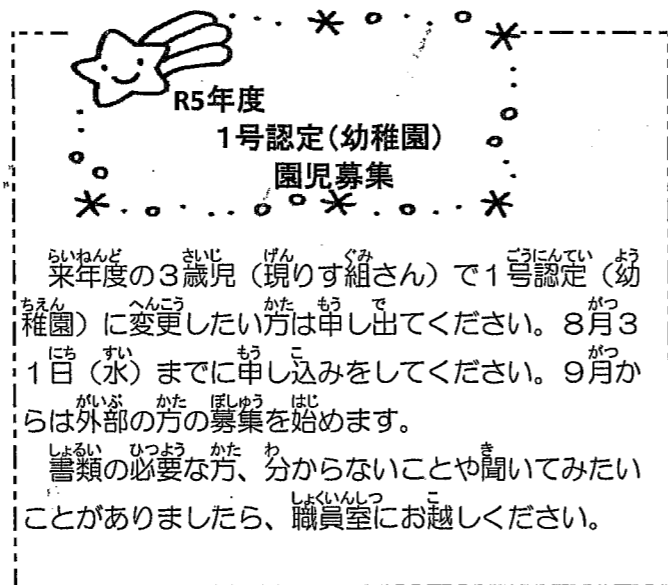 R5年度
1号認定(幼稚園)
園児募集
来年度の3歳児(現りす組さん)で1号認定(幼
稚園)に変更したい方は申し出てください。8月3
1日(水)までに申し込みをしてください。9月か
らは外部の方の募集を始めます。
書類の必要な方、分からないことや聞いてみたい
ことがありましたら、職員室にお越しください。